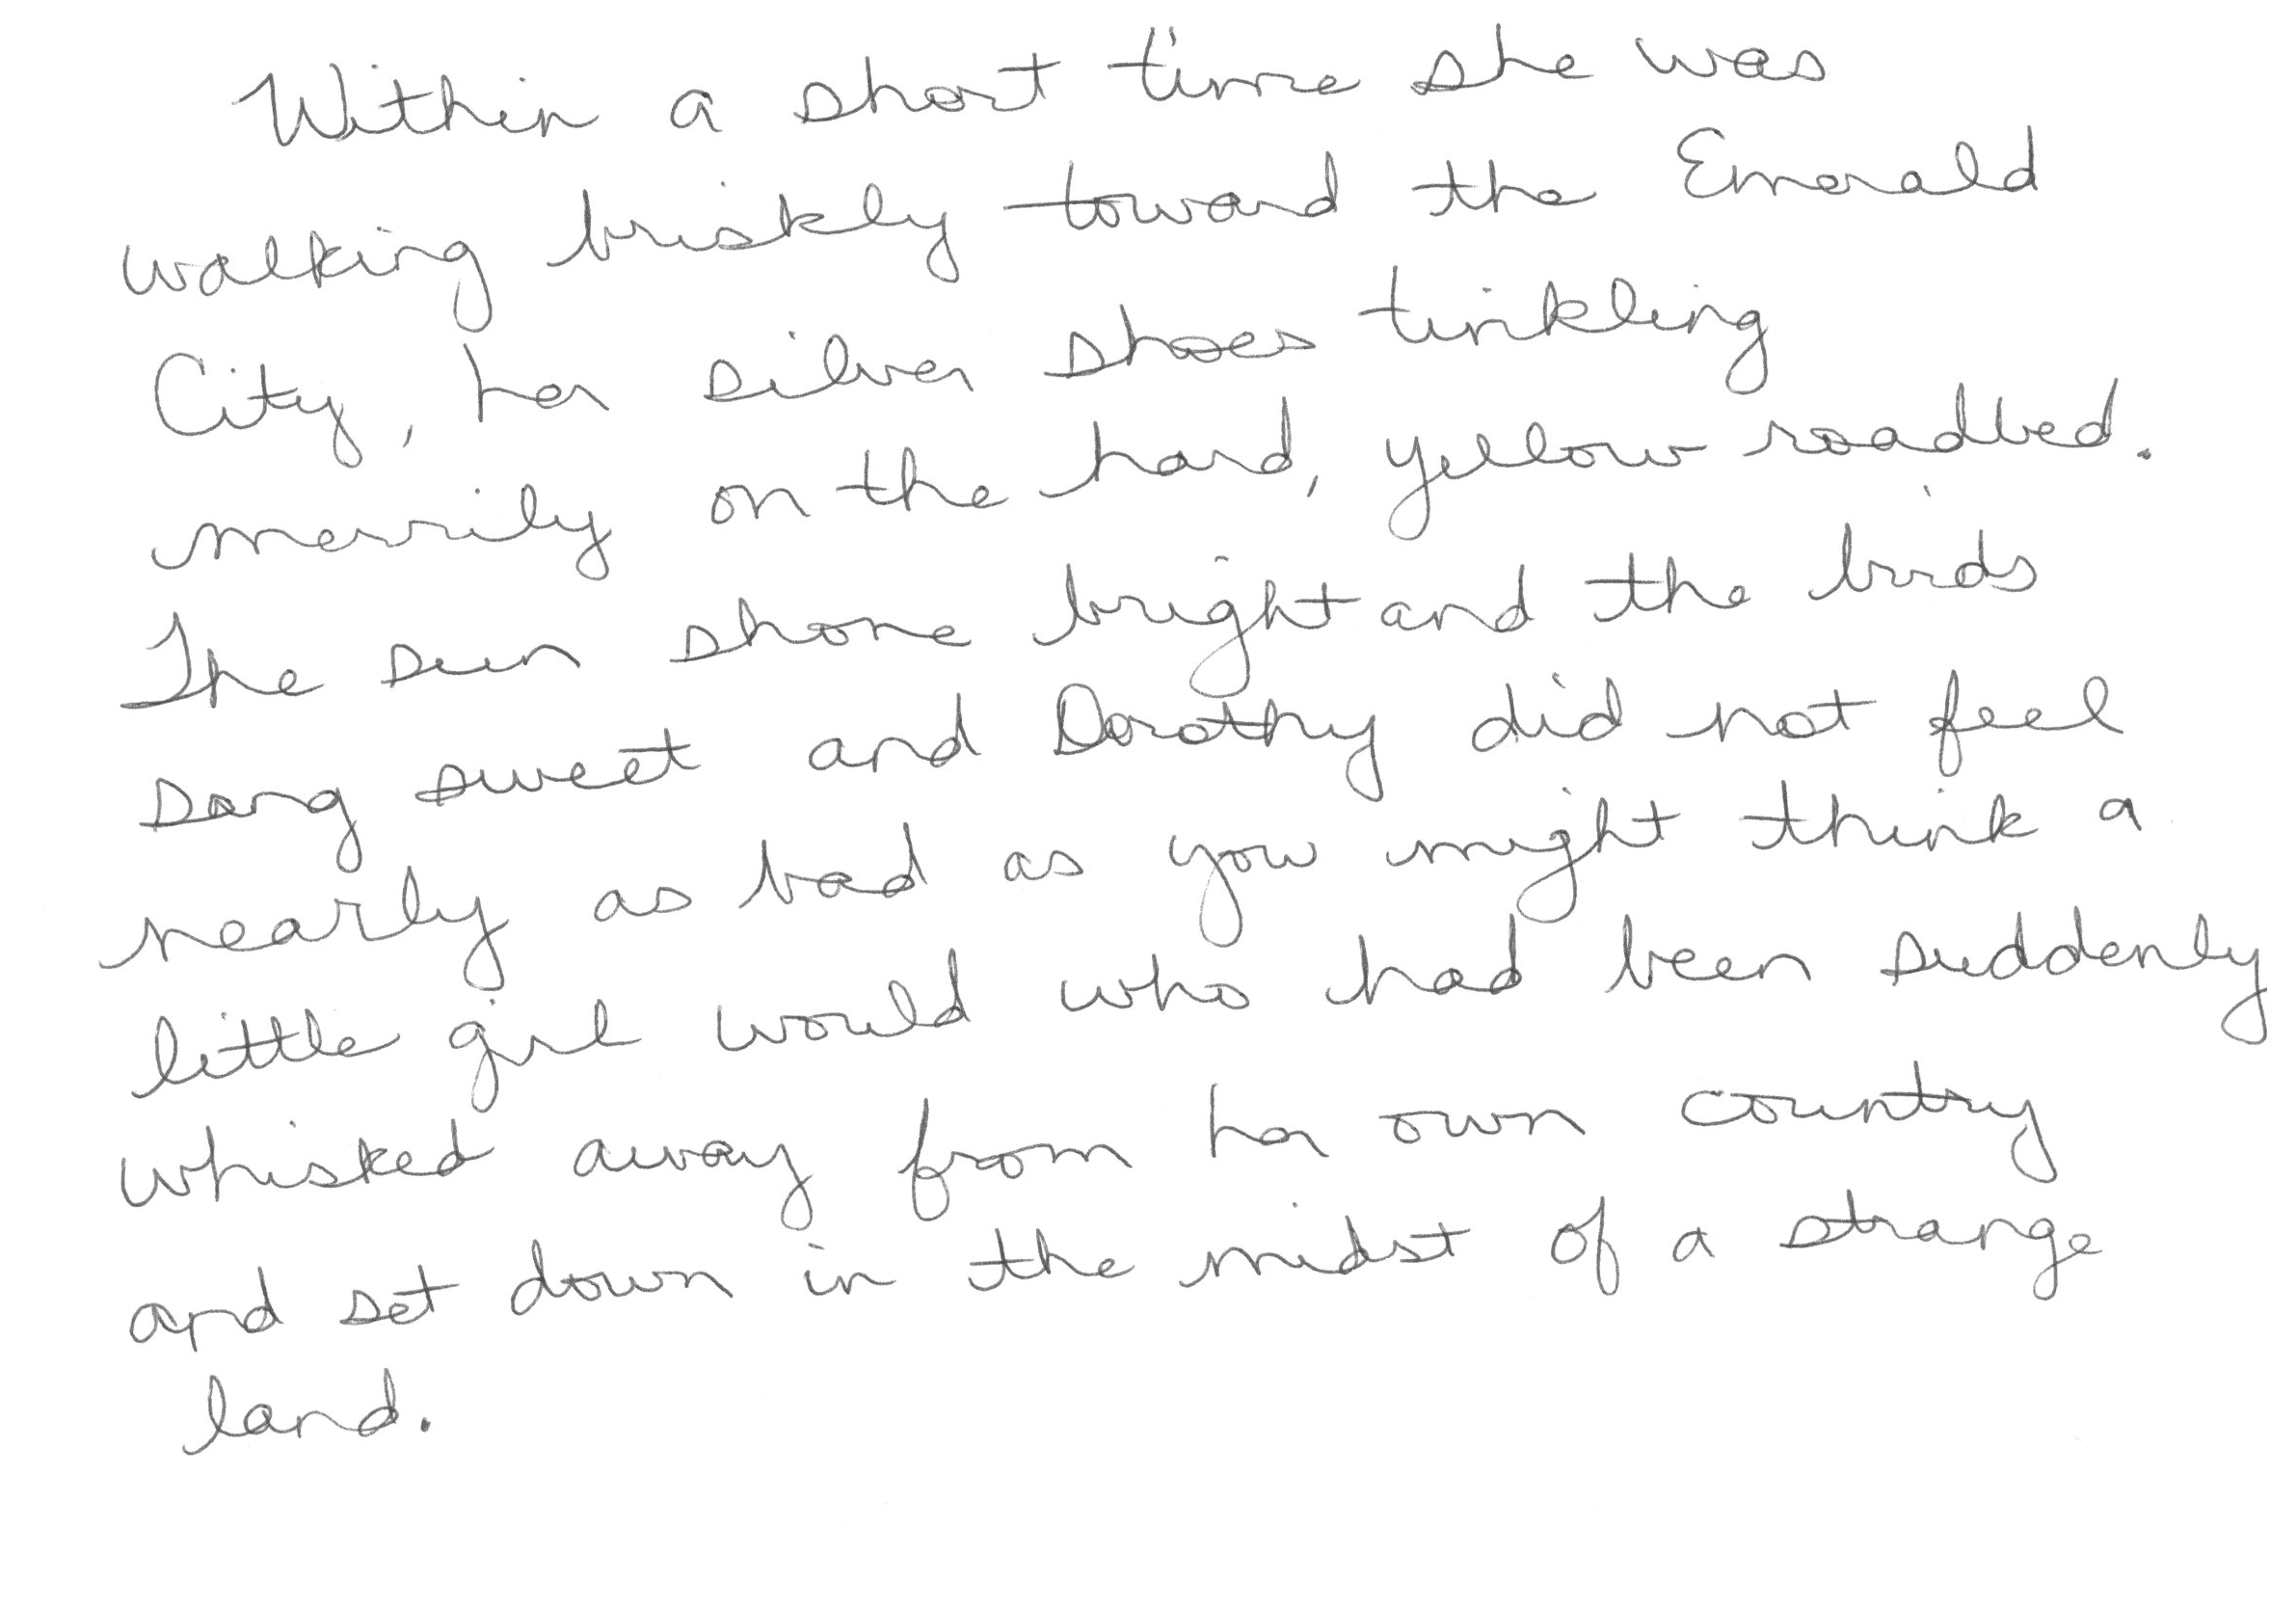 Within a short time she was
walking briskly toward the Emerald
City, her silver shoes tinkling
merrily on the hard, yellow roadbed.
The sun shone bright and the birds
sang sweet and Dorothy did not feel
nearly as bad as you might think a
little girl would who had been suddenly
whisked away from her own country
and set down in the midst of a strange
land.